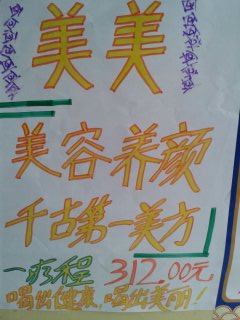 美美
美容养颜
千古第一美方
一疗程 312.00元
喝出健康,喝出美丽!